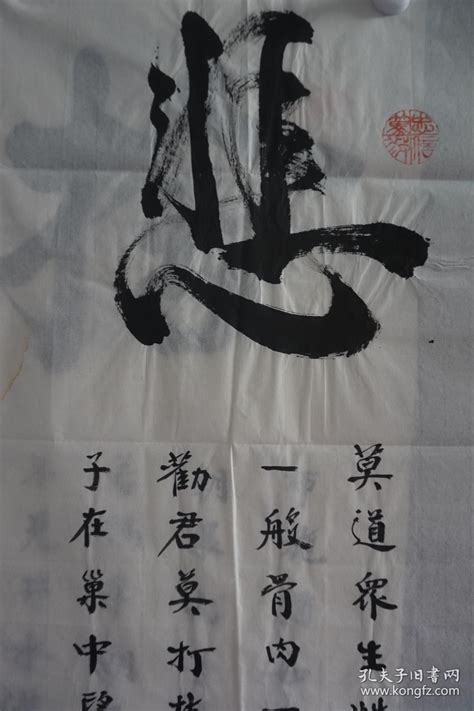 悲
莫道衆生
一般骨肉一
勸君莫打
子在巢中望
孔夫子旧书网
www.kongfz.com